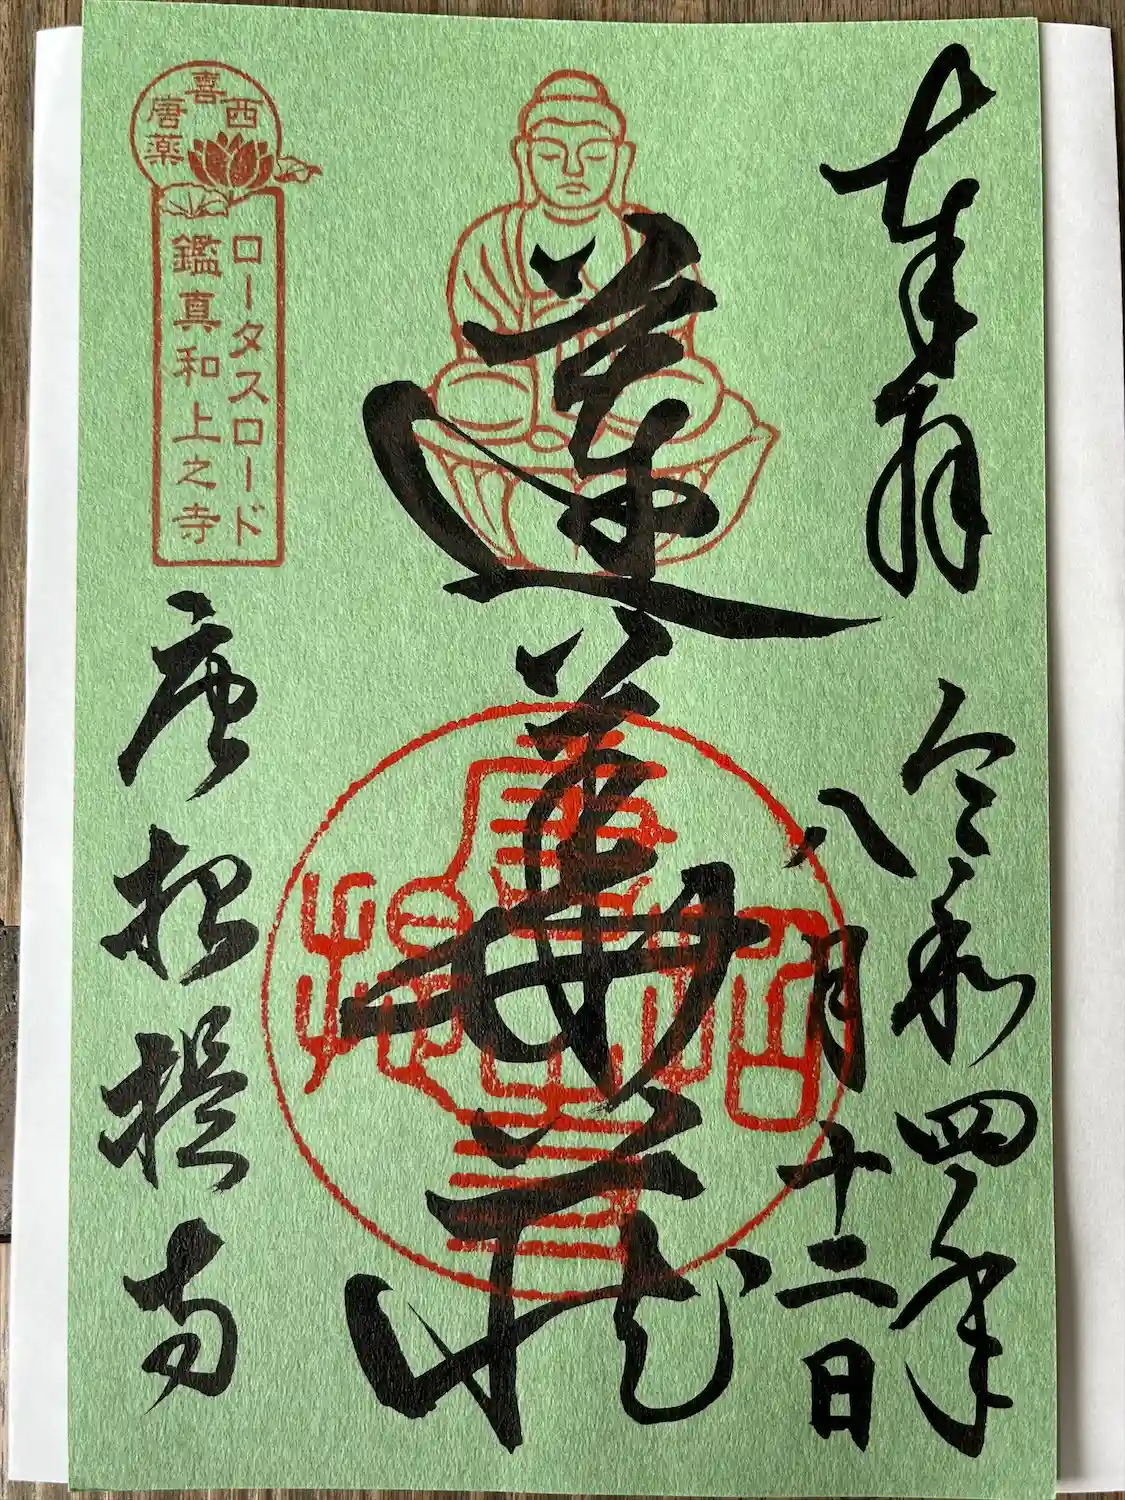 奉拝
令和四年
八月十二日
蓮華蔵
喜
唐西
薬
ロータスロード
鑑真和上之寺
唐招提寺